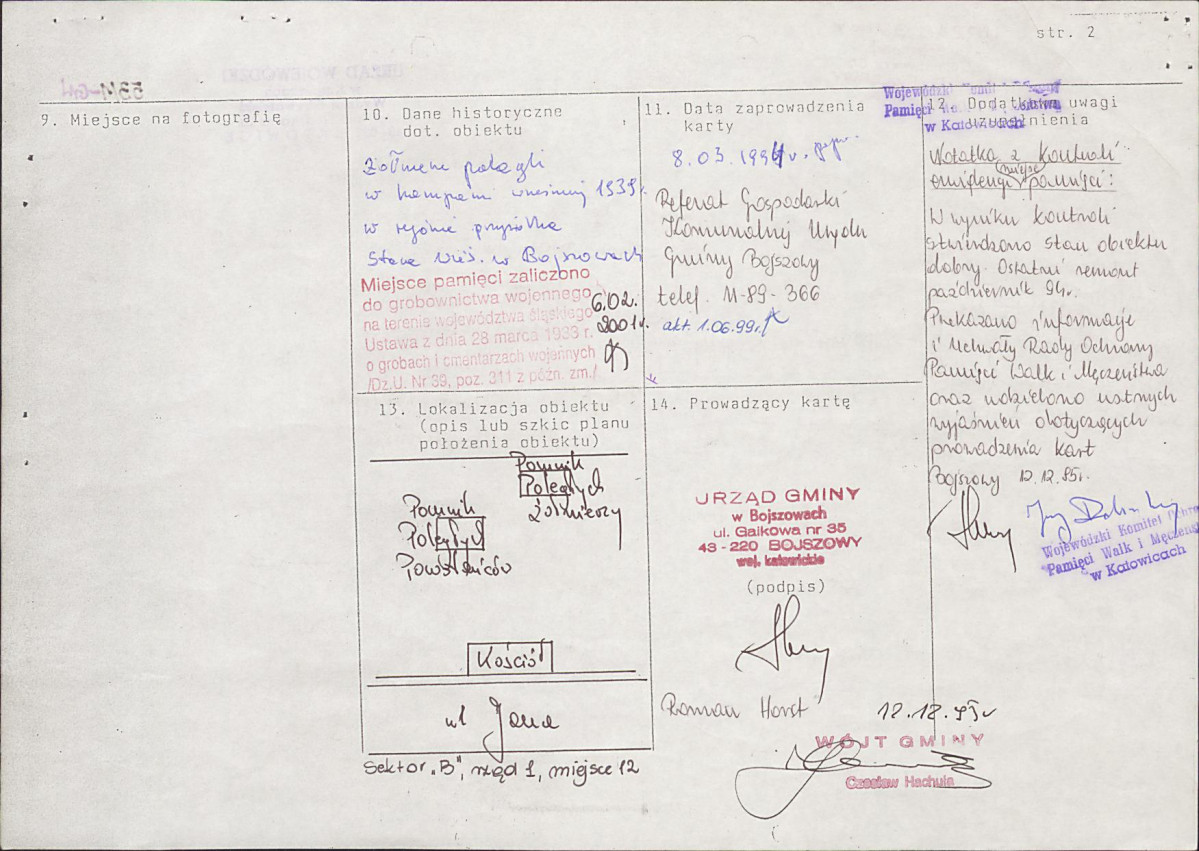 str. 2
9. Miejsce na fotografię
10. Dane historyczne
dot. obiektu
Żołnierze polegli
w kampani wrześniowej 1939r.
w rejonie przysiółka
Stara Wieś w Bojszowach
Miejsce pamięci zaliczono
do grobownictwa wojennego
na terenie województwa śląskiego
Ustawa z dnia 28 marca 1933 r.
o grobach i cmentarzach wojennych
/Dz.U. Nr 39, poz. 311 z późn. zm./
6.02.
2001r.
11. Data zaprowadzenia
karty
8.03.1994r.
Referat Gospodarki
Komunalnej Urzędu
Gminy Bojszowy
telef. 11-89-366
akt. 1.06.99r.
Wojewódzki
Pamięci
w Katowicach
12. Dodatkowe uwagi
uzupełnienia
Notatka z kontroli
ewidencji miejsc pamięci:
W wyniku kontroli
stwierdzono stan obiektu
dobry. Ostatni remont
październik 94r.
Przekazano informacje
i Uchwały Rady Ochrony
Pamięci Walk i Męczeństwa
oraz udzielono ustnych
wyjaśnień dotyczących
prowadzenia kart
Bojszowy 12.12.95r.
Wojewódzki Komitet Ochro
Pamięci Walk i Męczeńs
w Katowicach
13. Lokalizacja obiektu
(opis lub szkic planu
położenia obiektu)
Pomnik
Poległych
żołnierzy
Pomnik
Poległych
Powstańców
Kościół
ul Jana
Sektor „B", rząd 1, miejsce 12
14. Prowadzący kartę
URZĄD GMINY
w Bojszowach
ul. Gaikowa nr 35
43-220 BOJSZOWY
woj. katowickie
(podpis)
Roman Horst
12.12.95r
WÓJT GMINY
Czesław Hachuła